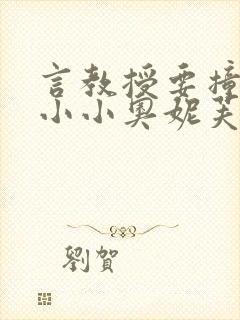 言教授要撞
小小奥妮芙
劉賀